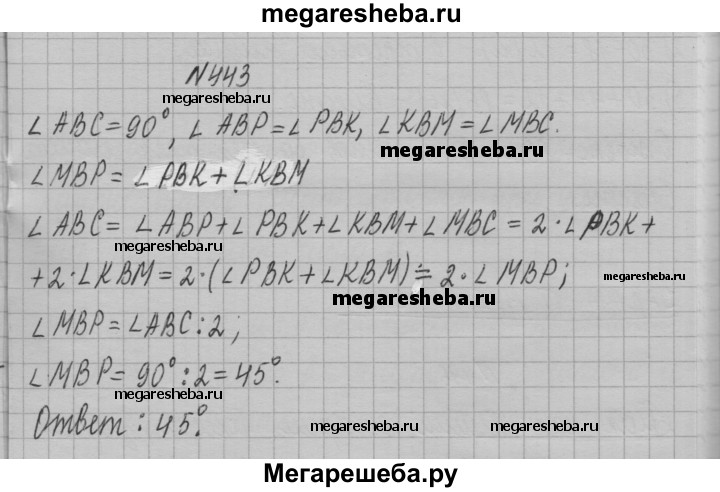 megaresheba.ru
N443
megaresheba.ru
∠ABC=90°, ∠ABP=∠PBK, ∠KBM=∠MBC.
megaresheba.ru
∠MBP=∠PBK+∠KBM
∠ABC=∠ABP+∠PBK+∠KBM+∠MBC=2·∠PBK+
megaresheba.ru
+2·∠KBM=2·(∠PBK+∠KBM)=2·∠MBP;
megaresheba.ru
megaresheba.ru
∠MBP=∠ABC:2;
∠MBP=90°:2=45°.
megaresheba.ru
Ответ: 45°.
megaresheba.ru
megaresheba.ru
Мегарешеба.ру